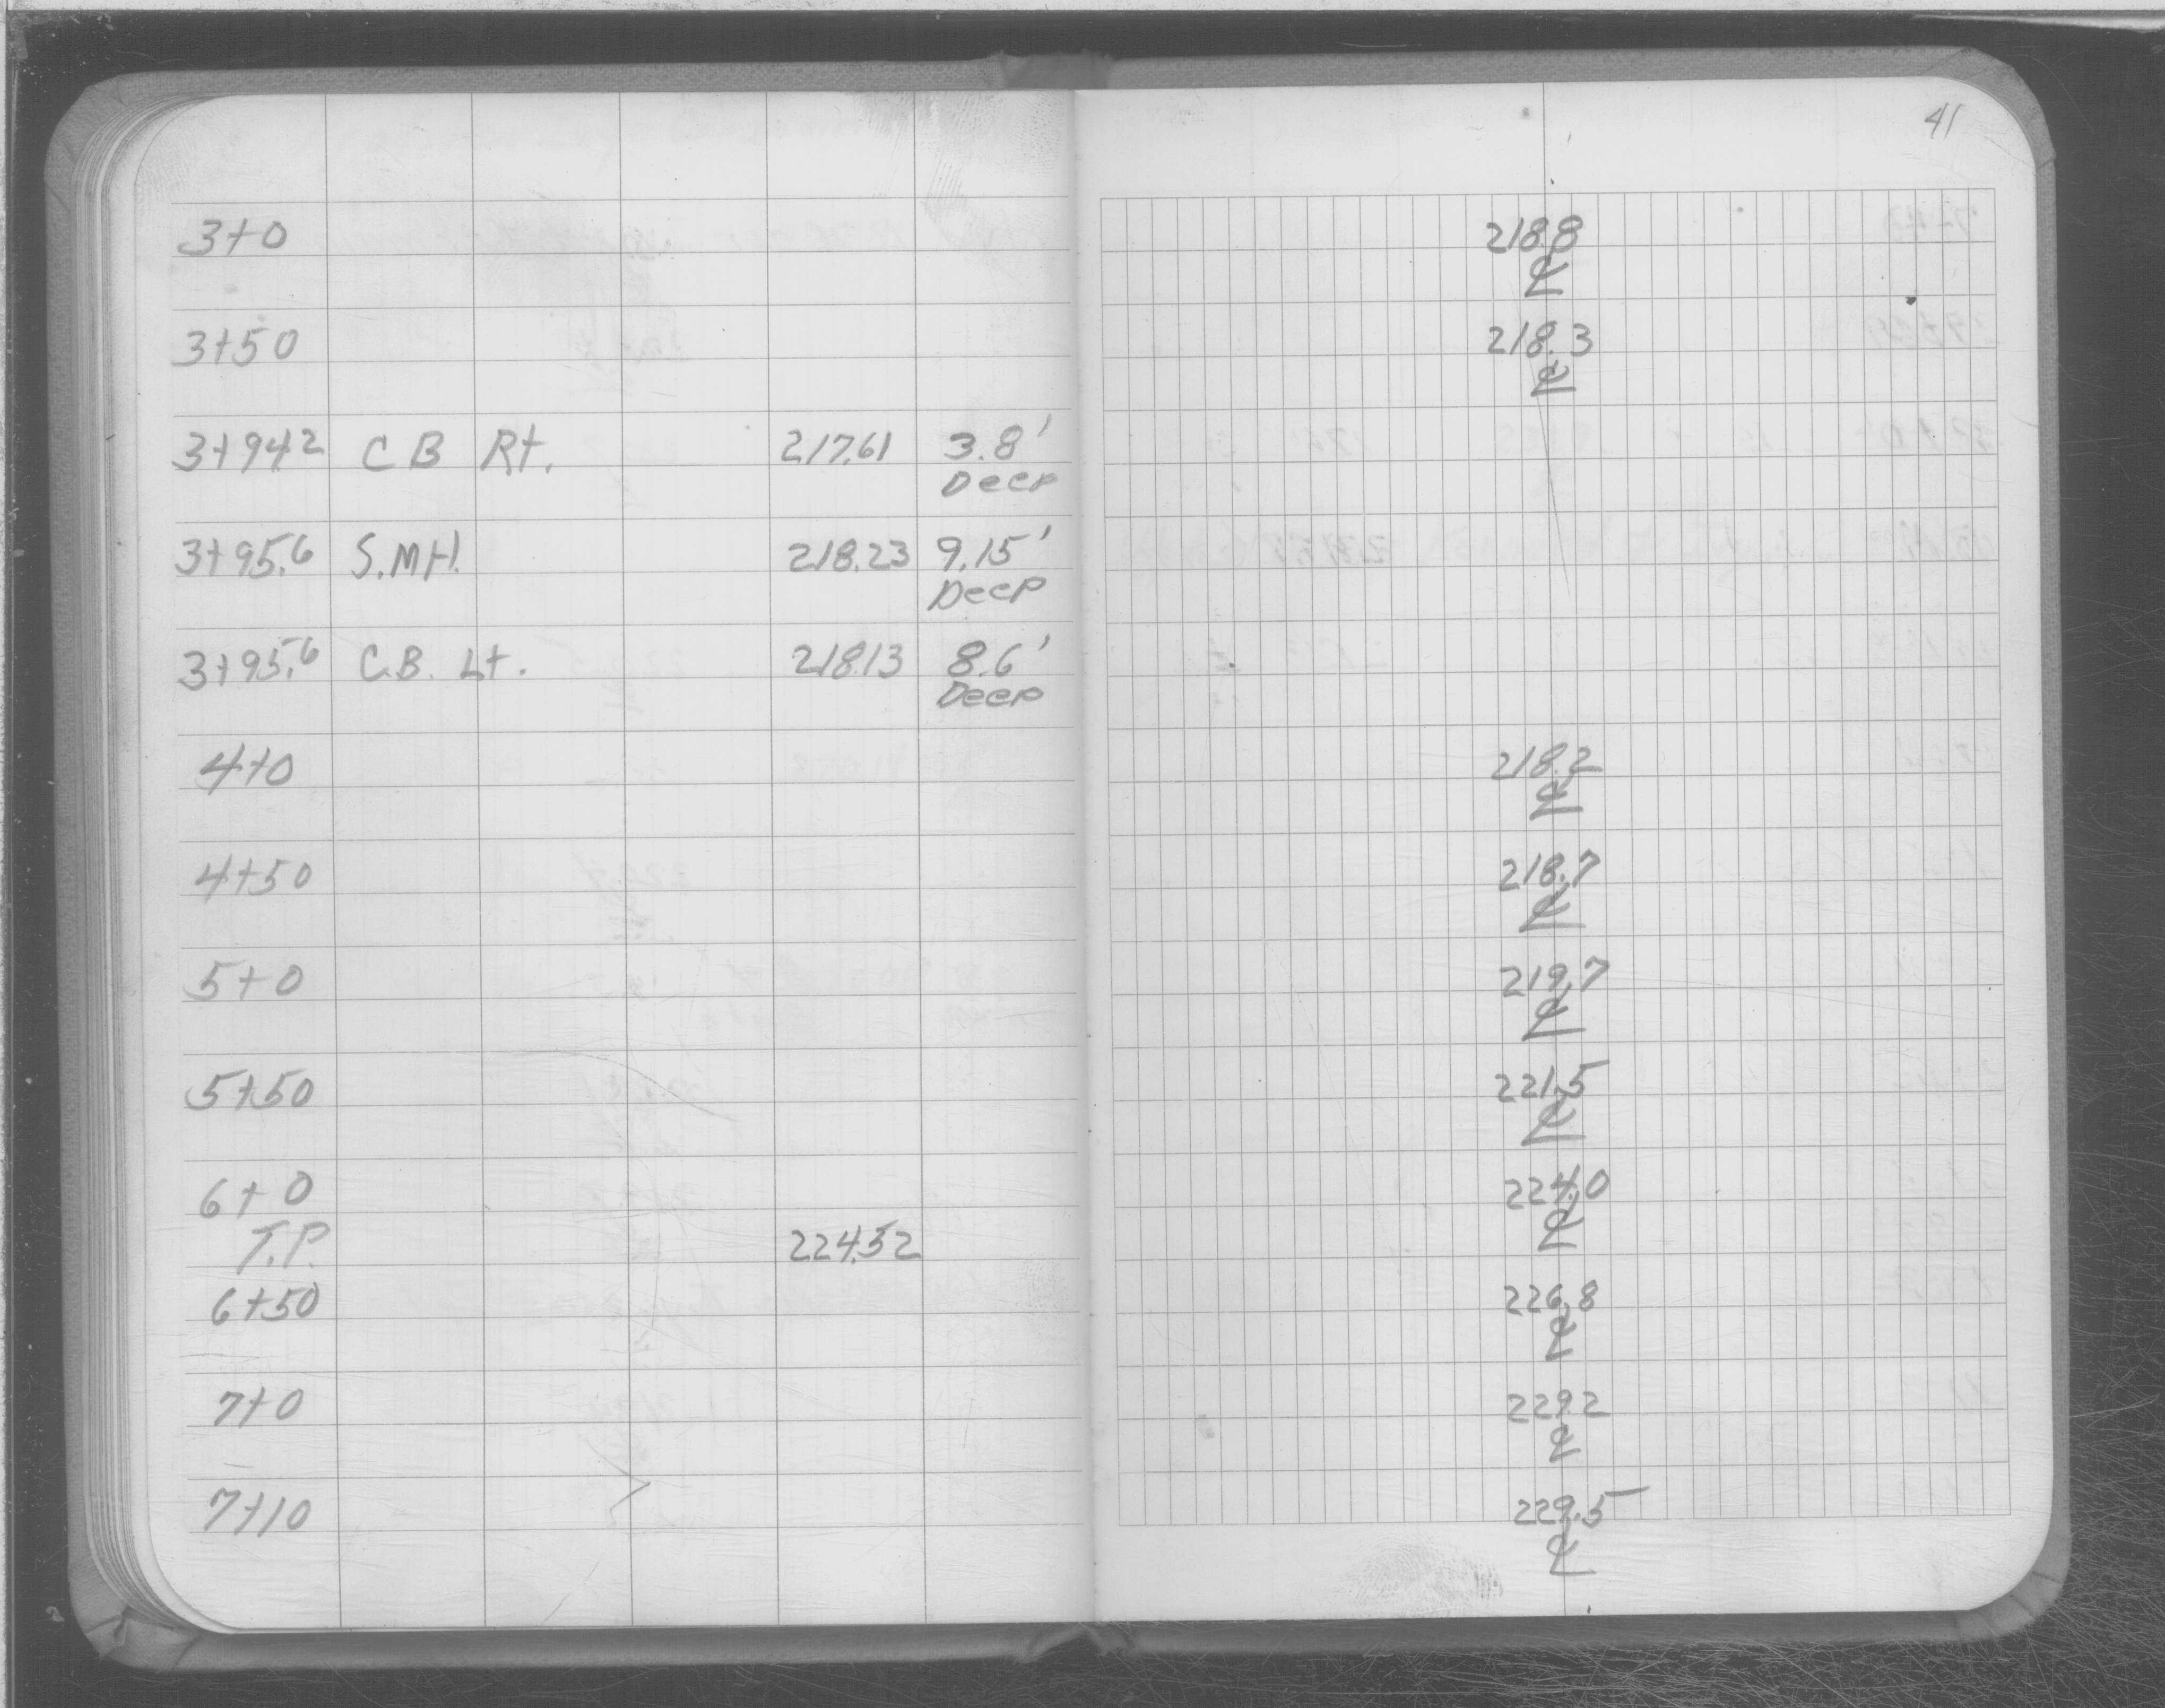 41
3+0 218.8
℄
3+50 218.3
℄
3+94.2 C B Rt. 217.61 3.8'
Deep
3+95.6 S.M.H. 218.23 9.15'
Deep
3+95.6 C.B. Lt. 218.13 8.6'
Deep
4+0 218.2
℄
4+50 218.7
℄
5+0 219.7
℄
5+50 221.5
℄
6+0 224.0
℄
T.P. 224.52
6+50 226.8
℄
7+0 229.2
℄
7+10 229.5
℄